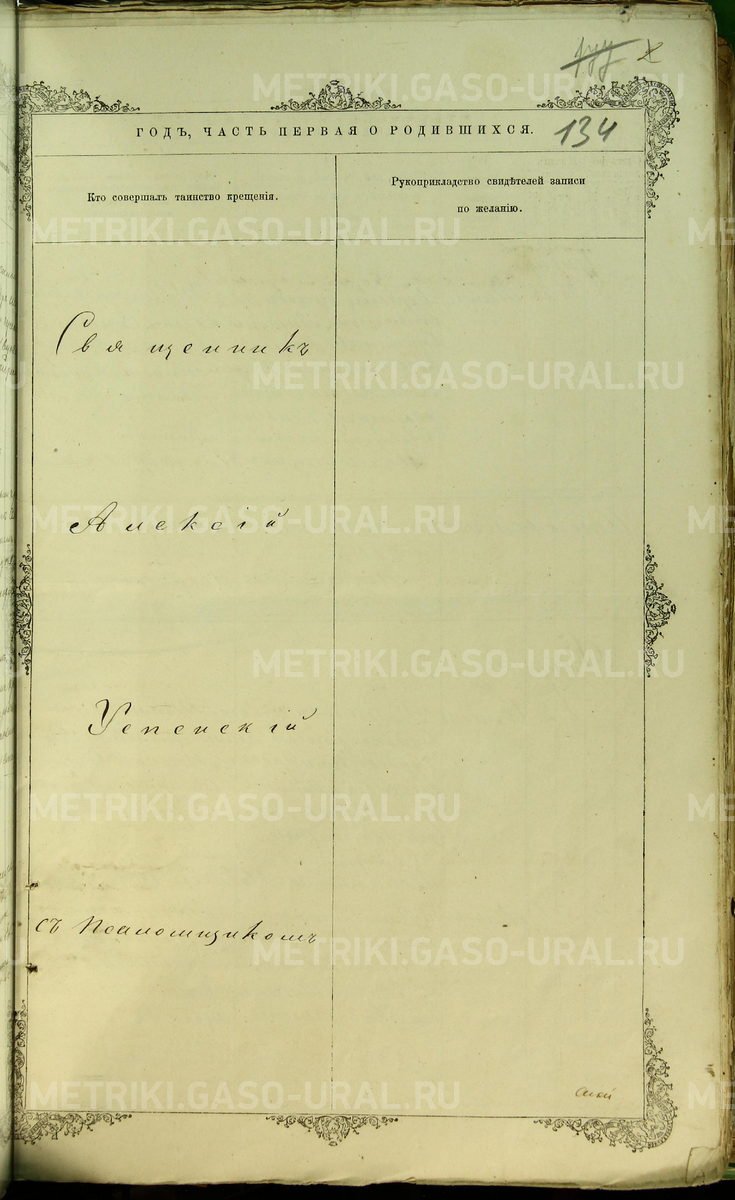 134
ГОДЪ, ЧАСТЬ ПЕРВАЯ О РОДИВШИХСЯ.
Кто совершалъ таинство крещенія.
Рукоприкладство свидѣтелей записи
по желанію.
Священникъ
Алексій
Успенскій
съ Псаломщикомъ
METRIKI.GASO-URAL.RU
METRIKI.GASO-URAL.RU
METRIKI.GASO-URAL.RU
METRIKI.GASO-URAL.RU
METRIKI.GASO-URAL.RU
METRIKI.GASO-URAL.RU
METRIKI.GASO-URAL.RU